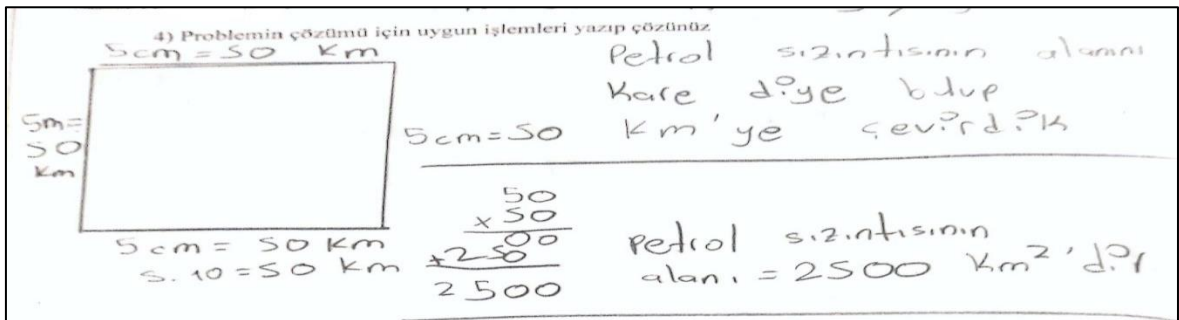 4) Problemin çözümü için uygun işlemleri yazıp çözünüz
5cm = 50 Km
5m =
50
Km
5 cm = 50 Km
5.10 = 50 Km
Petrol sızıntısının alanını
Kare diye bulup
5cm = 50 Km'ye çevirdik
50
x 50
00
+250
2500
Petrol sızıntısının
alanı = 2500 Km²'dir